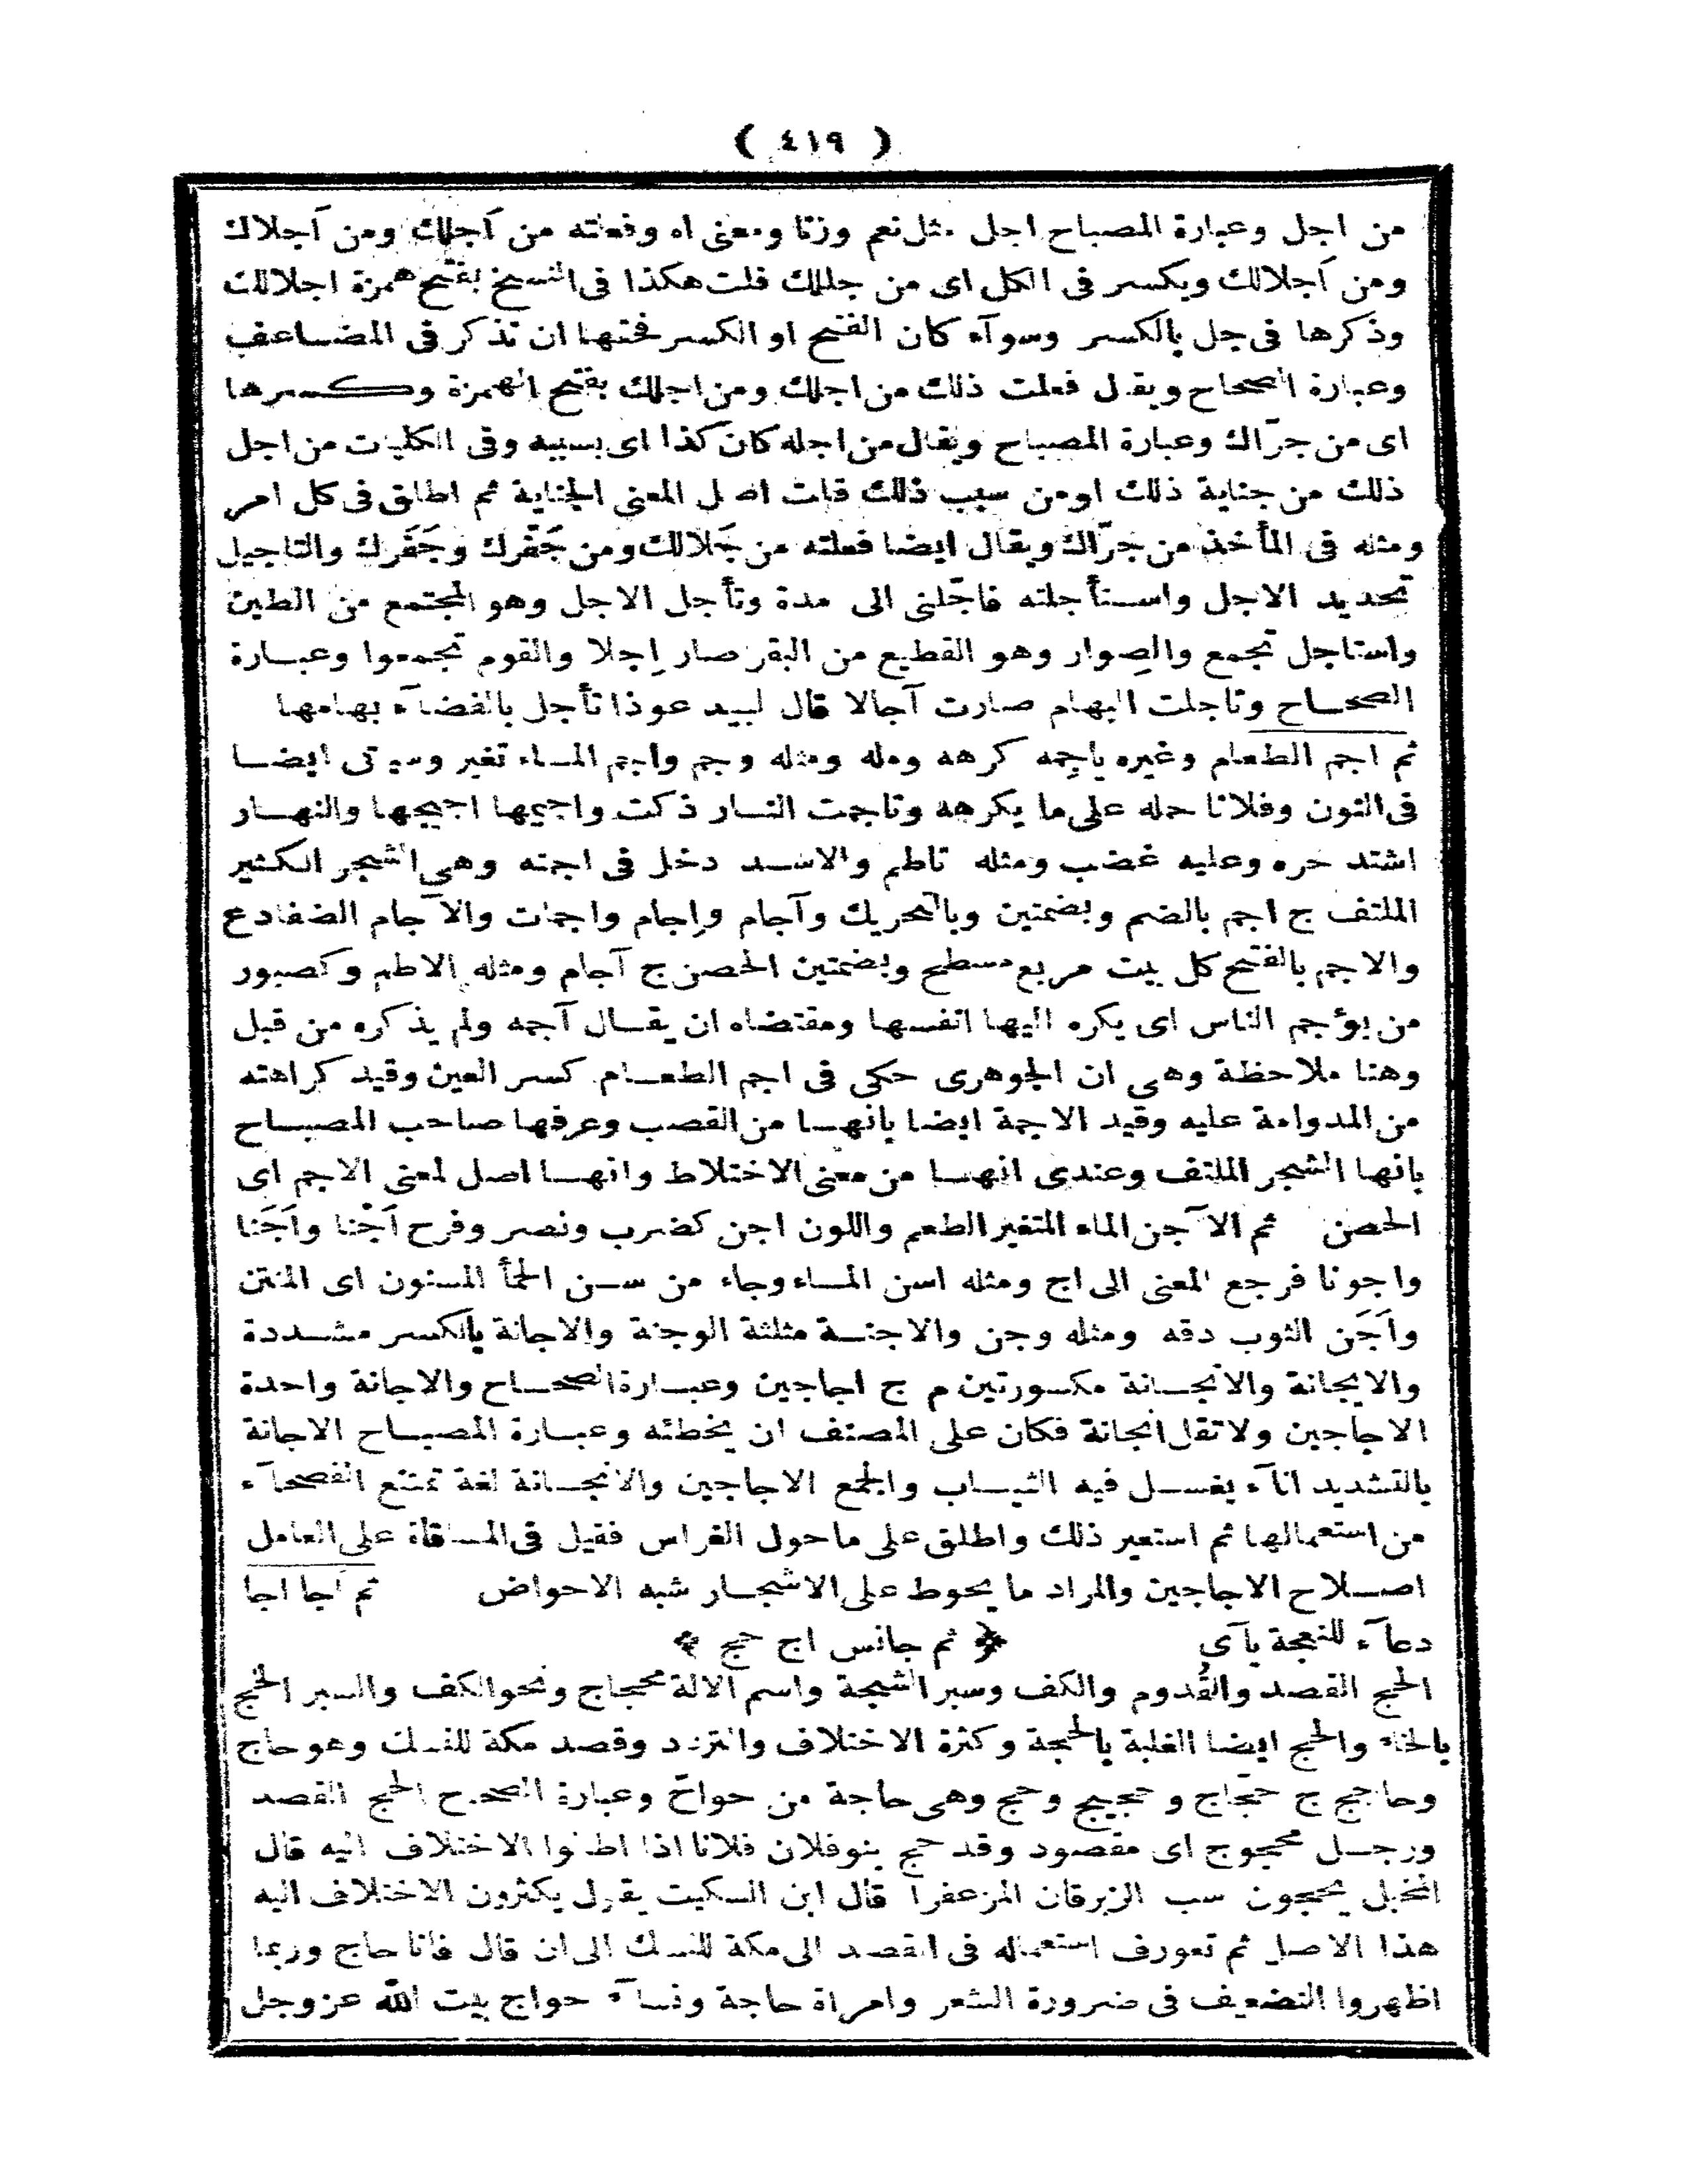 ( ٤١٩ )
من اجل وعبارة المصباح اجل مثل نعم وزنا ومعنى اه وفعلته من آجلك ومن آجلاك
ومن آجلالك ويكسر فى الكل اى من جللك قلت هكذا فى النسخ بفتح همزة اجلالك
وذكرها فى جل بالكسر وسوآء كان الفتح او الكسر فحقها ان تذكر فى المضاعف
وعبارة الصحاح ويقال فعلت ذلك من اجلك ومن اجلك بفتح الهمزة وكسرها
اى من جرّاك وعبارة المصباح ويقال من اجله كان كذا اى بسببه وفى الكليات من اجل
ذلك من جناية ذلك اومن سبب ذلك قلت اصل المعنى الجناية ثم اطلق فى كل امر
ومثله فى المأخذ من جرّاك ويقال ايضا فعلته من جَلالك ومن جَفْرك وجَفَرك والتاجيل
تحديد الاجل واستأجلته فاجّلنى الى مدة وتأجل الاجل وهو المجتمع من الطين
واستاجل تجمع والصِوار وهو القطيع من البقر صار إجلا والقوم تجمعوا وعبارة
الصحاح وتاجلت البهام صارت آجالا قال لبيد عوذا تأجل بالفضآء بهامها
ثم اجم الطعام وغيره ياجِمه كرهه ومله ومثله وجم واجم الماء تغير وسيأتى ايضا
فى النون وفلانا حمله على ما يكرهه وتاجمت النار ذكت واجيمها اجيجها والنهار
اشتد حره وعليه غضب ومثله تاطم والاسد دخل فى اجمته وهى الشجر الكثير
الملتف ج اجم بالضم وبضمتين وبالتحريك وآجام وإجام واجمات والآجام الضفادع
والاجم بالفتح كل بيت مربع مسطح وبضمتين الحصن ج آجام ومثله الاطم وكصبور
من يؤجم الناس اى يكره اليها انفسها ومقتضاه ان يقال آجمه ولم يذكره من قبل
وهنا ملاحظة وهى ان الجوهرى حكى فى اجم الطعام كسر العين وقيد كراهته
من المدوامة عليه وقيد الاجمة ايضا بانها من القصب وعرفها صاحب المصباح
بانها الشجر الملتف وعندى انها من معنى الاختلاط وانها اصل لمعنى الاجم اى
الحصن ثم الآجن الماء المتغير الطعم واللون اجن كضرب ونصر وفرح اَجْنا واَجَنا
واجونا فرجع المعنى الى اج ومثله اسن الماء وجاء من سن الحمأ المسنون اى المنتن
واَجَن الثوب دقه ومثله وجن والاجنة مثلثة الوجنة والاجانة بالكسر مشددة
والايجانة والانجانة مكسورتين م ج اجاجين وعبارة الصحاح والاجانة واحدة
الاجاجين ولا تقل انجانة فكان على المصنف ان يخطئه وعبارة المصباح الاجانة
بالتشديد انآء يغسل فيه الثياب والجمع الاجاجين والانجانة لغة تمتنع الفصحآء
من استعمالها ثم استعير ذلك واطلق على ماحول الغراس فقيل فى المساقاة على العامل
اصلاح الاجاجين والمراد ما يحوط على الاشجار شبه الاحواض ثم اجا اجا
دعآء للنعجة يآى ﴿ ثم جانس اج حج ﴾
الحج القصد والقُدوم والكف وسبر الشجة واسم الالة محجاج ونحو الكف والسبر الخج
بالخاء والحج ايضا الغلبة بالحجة وكثرة الاختلاف والتردد وقصد مكة للنسك وهو حاج
وحاجج ج حجّاج وحجيج وحج وهى حاجة من حواجّ وعبارة الصحاح الحج القصد
ورجل محجوج اى مقصود وقد حج بنو فلان فلانا اذا اطالوا الاختلاف اليه قال
المخبل يحجون سب الزبرقان المزعفرا قال ابن السكيت يقول يكثرون الاختلاف اليه
هذا الاصل ثم تعورف استعماله فى القصد الى مكة للنسك الى ان قال فانا حاج وربما
اظهروا التضعيف فى ضرورة الشعر وامراة حاجة ونسآء حواج بيت الله عز وجل